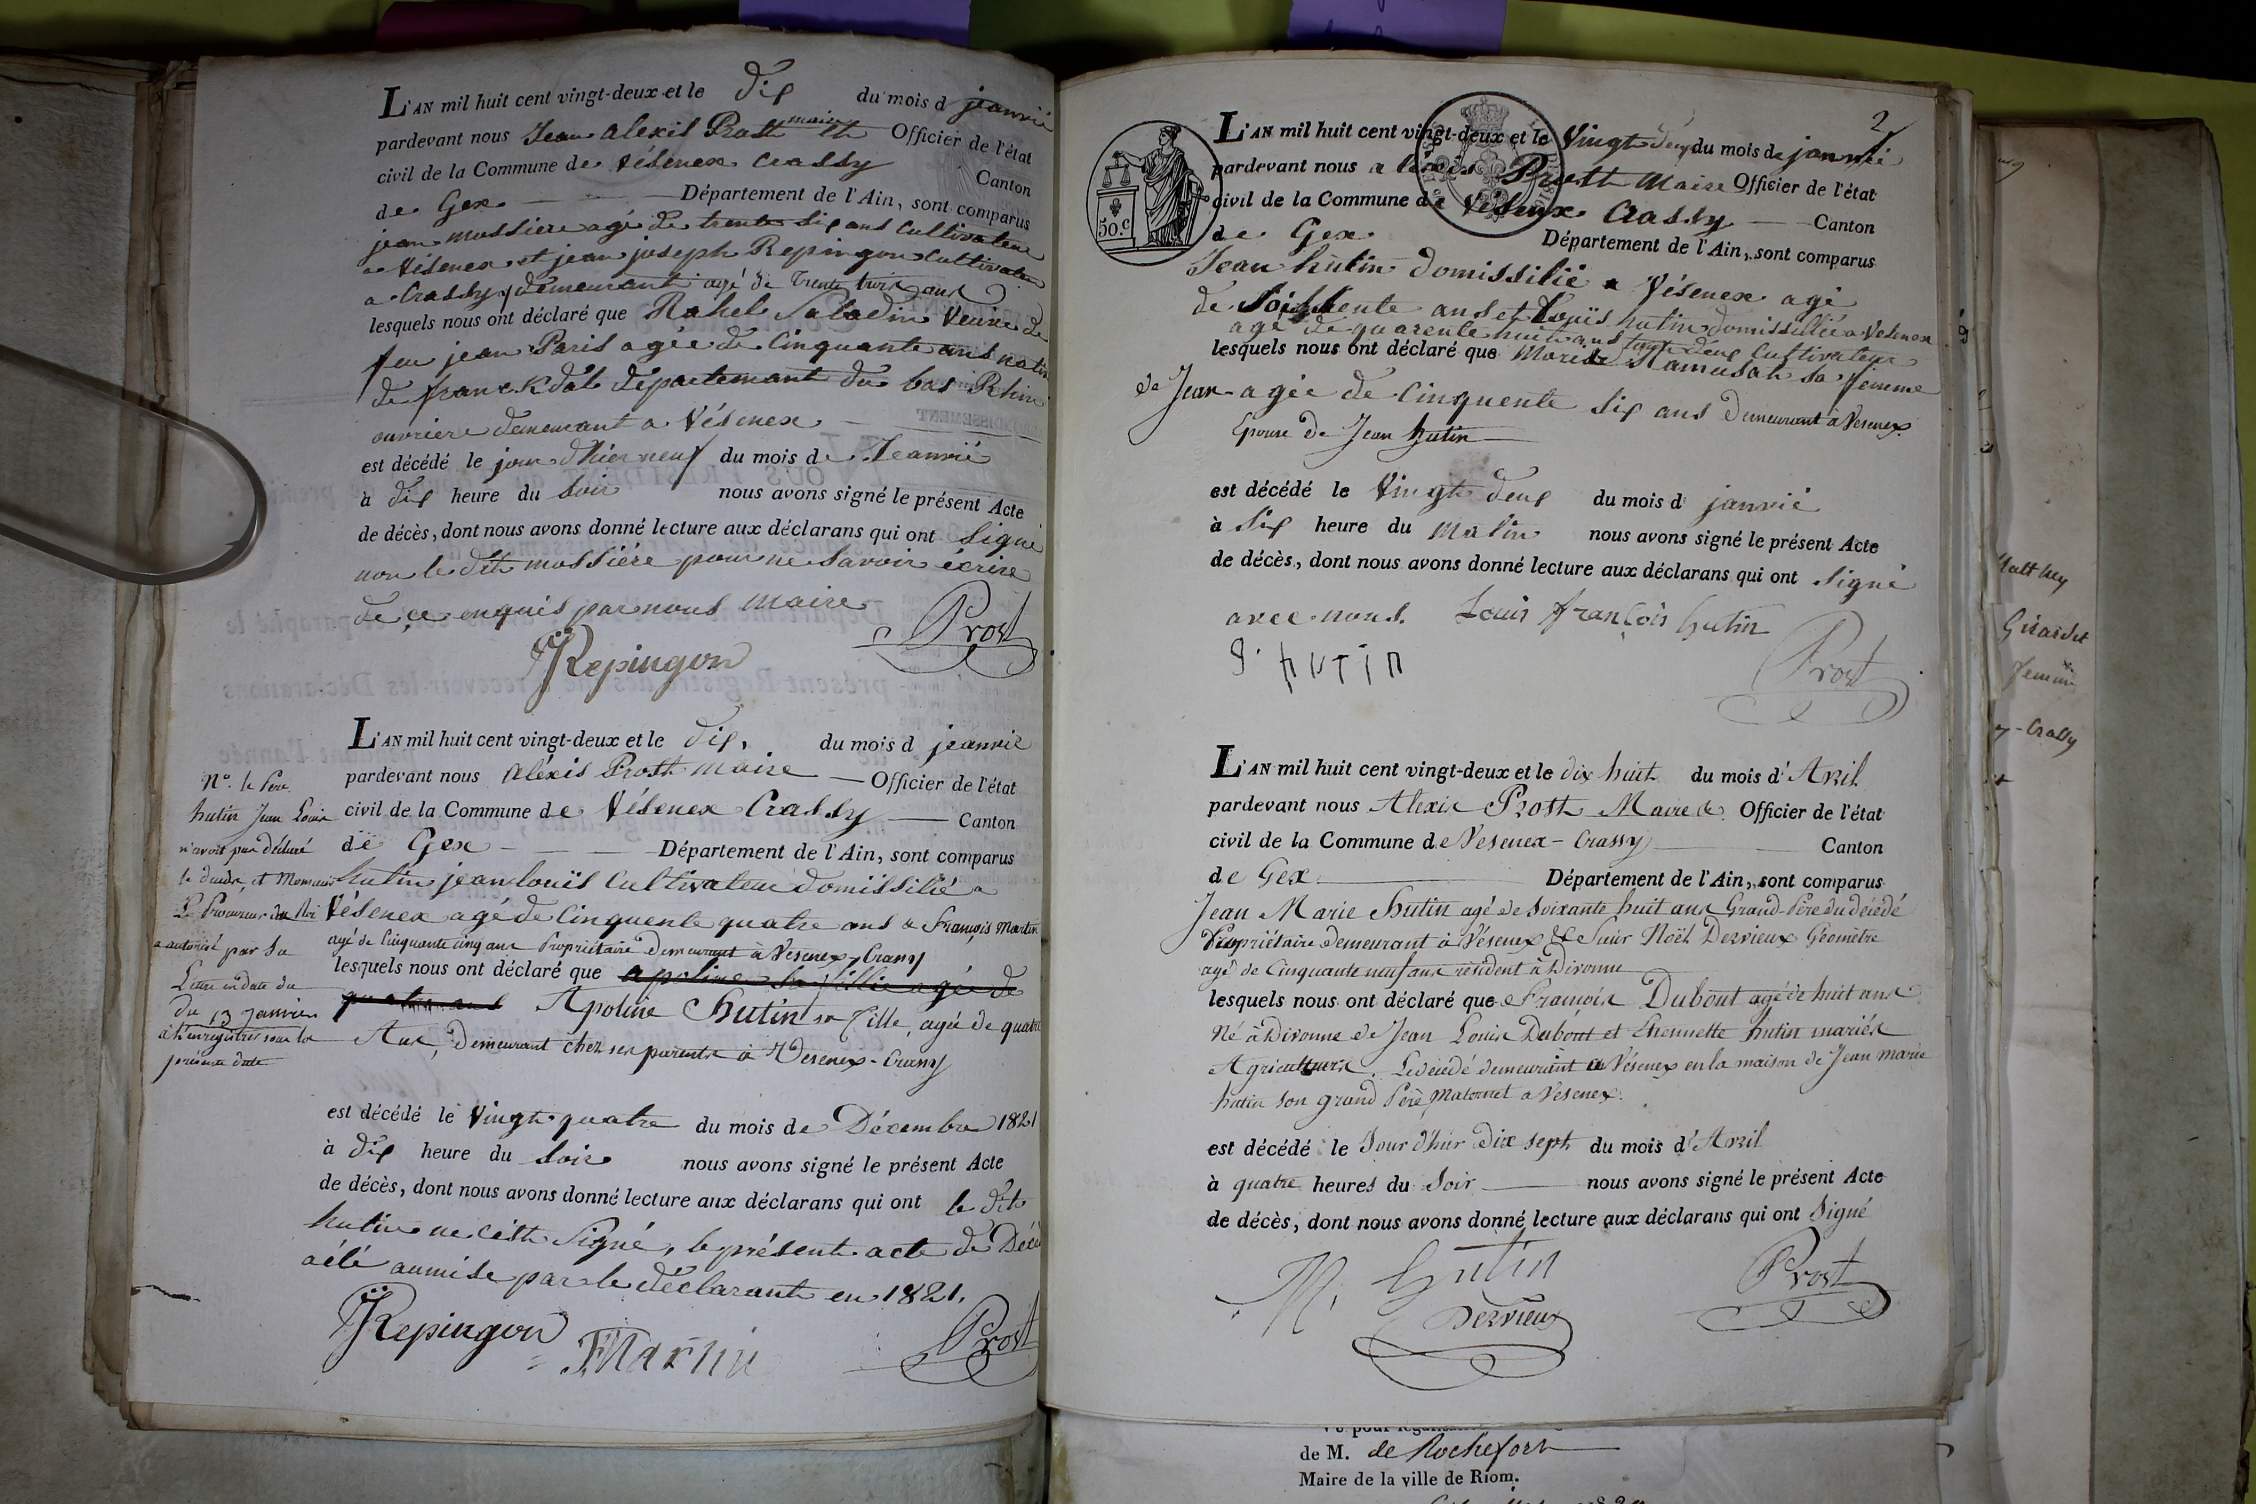 L'AN mil huit cent vingt-deux et le dix du mois d jeanvié
pardevant nous Jean alexis Prost maire et Officier de l'état
civil de la Commune de Vésenex Crassy Canton
de Gex Département de l'Ain, sont comparus
jean mossiere agé de trente six ans Cultivateur
a Vésenex et jean joseph Repingon Cultivateur
a Crassy y demeurant agé de Trente trois ans
lesquels nous ont déclaré que Rahel Saladin Veuve de
feu jean Paris agée de Cinquante ans native
de franckdal département du bas Rhin
ouvriere demeurant a Vésenex
est décédé le jour d'hier neuf du mois de Jeanvié
à dix heure du Soir nous avons signé le présent Acte
de décès, dont nous avons donné lecture aux déclarans qui ont Signé
non le dit mossière pour ne Savoir écrire
de çe enquis par nous maire
Prost
JJRepingon
L'AN mil huit cent vingt-deux et le dix, du mois d jeanvié
pardevant nous Aléxis Prost maire Officier de l'état
civil de la Commune de Vésenex Crassy Canton
de Gex Département de l'Ain, sont comparus
hutin jean louïs Cultivateur domissilié a
Vésenex agé de Cinquente quatre ans & François Martin
agé de Cinquante cinq ans Propriétaire demeurant à Vesenex, Crassy
lesquels nous ont déclaré que apoline Sa fillie agée de
quatre ans Apoline Hutin sa fille, agée de quatre
Ans, demeurant chez ses parents à Vesenex-Crassy
est décédé le Vingt quatre du mois de Décembre 1821
à dix heure du Soir nous avons signé le présent Acte
de décès, dont nous avons donné lecture aux déclarans qui ont le dit
hutin ne cest Signé, le présent acte de Décè
a été aumise par le déclarant en 1821.
JJRepingon
FMartin
Prost
Nª. le Père
hutin Jean Louis
n'avoit pas déclaré
le décès, et Monsieur
le Procureur du Roi
a autorisé par Sa
Lettre en date du
du 13 Janvier
à l'enregistrer sous la
présente date
2
50.c
L'AN mil huit cent vingt-deux et le Vingt deux du mois de janvié
pardevant nous aléxis Prost maire Officier de l'état
civil de la Commune de Vésenex Crassy Canton
de Gex Département de l'Ain, sont comparus
Jean hutin domissilié a Vésenex agé
de Soissente ans et Louïs hutin domissillié a Vésenex
agé de quarente huit ans tout deux Cultivateur
lesquels nous ont déclaré que Marie Ramusat sa femme
de Jean agée de Cinquente Six ans Demeurant à Vesenex.
Epouse de Jean hutin
est décédé le Vingt deux du mois d janvié
à Six heure du Matin nous avons signé le présent Acte
de décès, dont nous avons donné lecture aux déclarans qui ont Signé
avec nous. Louis françois hutin
Prost
L'AN mil huit cent vingt-deux et le dix huit du mois d'Avril
pardevant nous Alexis Prost Maire & Officier de l'état
civil de la Commune de Vesenex-Crassy Canton
de Gex Département de l'Ain, sont comparus
Jean Marie Hutin agé de Soixante huit ans Grand-Père du décédé
Propriétaire demeurant à Vésenex & Sieur Noël Dervieux Géomètre
agé de Cinquante neuf ans résident à Divonne
lesquels nous ont déclaré que François Dubout agé de huit ans
Né à Divonne de Jean Louis Dubout et Etiennette hutin mariés
Agriculteurs. Le décédé demeurant a Vésenex en la maison de Jean Marie
hutin son grand Père Maternel a Vesenex.
est décédé le Jour d'hier Dix sept du mois d'Avril
à quatre heures du Soir nous avons signé le présent Acte
de décès, dont nous avons donné lecture aux déclarans qui ont Signé
M. hutin
Dervieux
Prost
Matthey
Girardet
femme
Crassy
de M. de Rochefort
Maire de la ville de Riom.